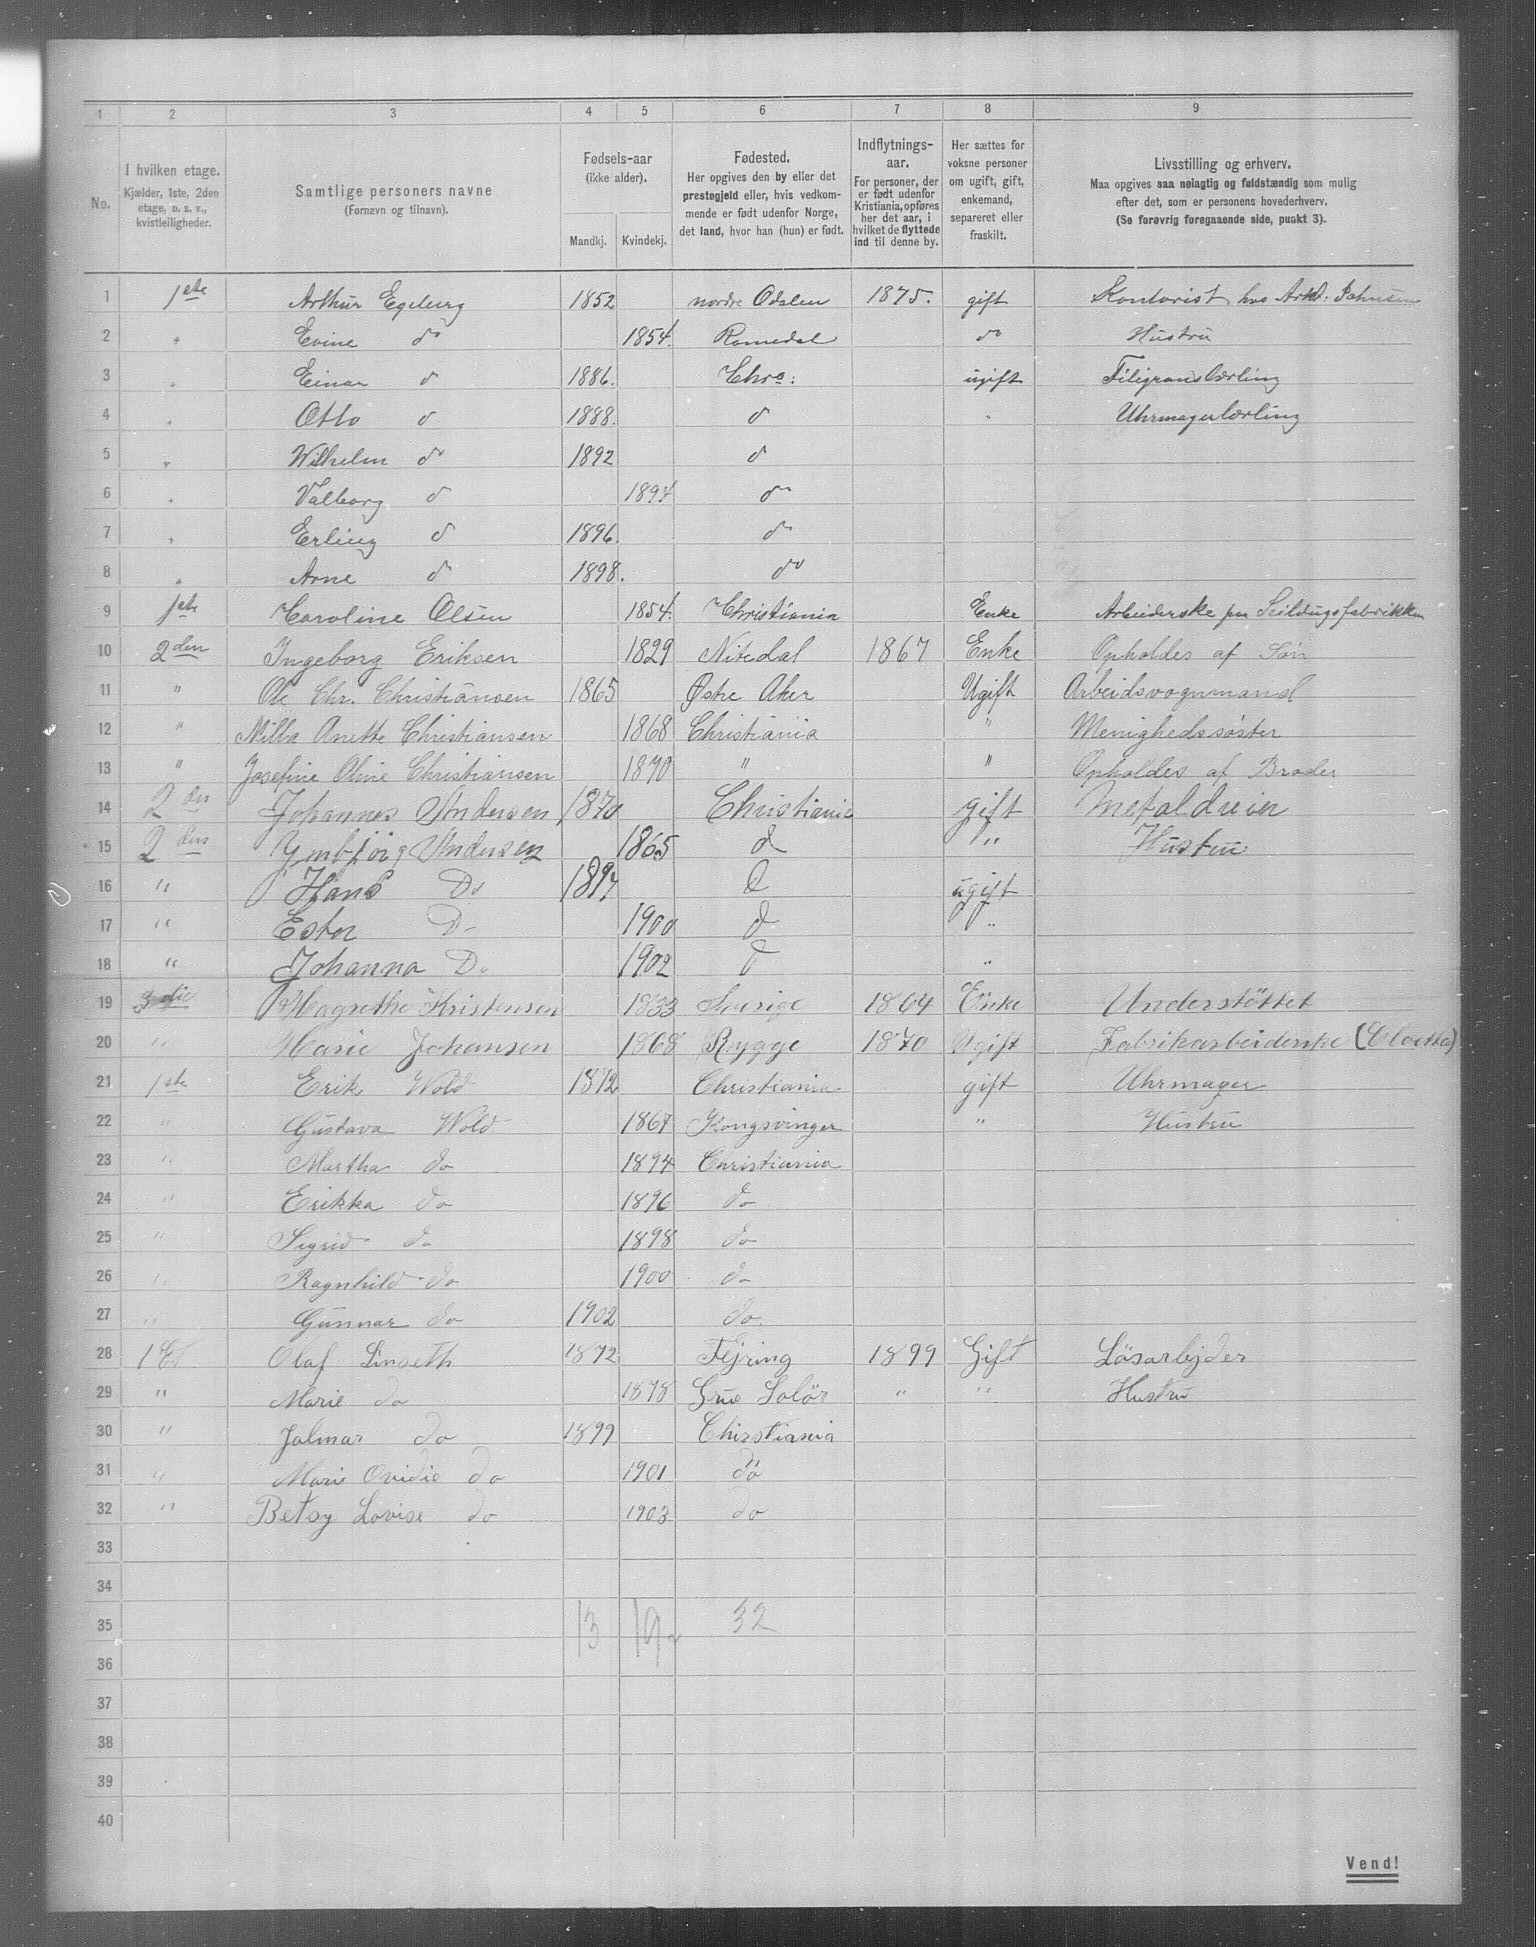 1 2 3 4 5 6 7 8 9
No.
I hvilken etage.
Kjælder, 1ste, 2den
etage, o. s. v.,
kvistleiligheder.
Samtlige personers navne
(Fornavn og tilnavn).
Fødsels-aar
(ikke alder).
Mandkj. Kvindekj.
Fødested.
Her opgives den by eller det
prestegjeld eller, hvis vedkom-
mende er født udenfor Norge,
det land, hvor han (hun) er født.
Indflytnings-
aar.
For personer, der
er født udenfor
Kristiania, opføres
her det aar, i
hvilket de flyttede
ind til denne by.
Her sættes for
voksne personer
om ugift, gift,
enkemand,
separeret eller
fraskilt.
Livsstilling og erhverv.
Maa opgives saa nøiagtig og fuldstændig som mulig
efter det, som er personens hovederhverv.
(Se forøvrig foregaaende side, punkt 3).
1 1ste Arthur Egeberg 1852 nordre Odalen 1875. gift Kontorist hos
2 " Evine do 1854. Romedal do Hustru
3 " Einar d 1886. Chra: ugift Filigranslærling
4 " Otto d 1888. d " Uhrmagerlærling
5 " Wilhelm do 1892 d
6 " Valborg d 1894 do
7 " Erling d 1896. do
8 " Arne d 1898. do
9 1ste Karoline Olsen 1854. Christiania Enke Arbeiderske paa Seildugsfabrikken
10 2den Ingeborg Eriksen 1829 Nitedal 1867 Enke Opholdes af Søn
11 " Ole Chr. Christiansen 1865 Østre Aker Ugift Arbeidsvognmand
12 " Milla Anette Christiansen 1868 Christiania " Menighedssøster
13 " Josefine Oline Christiansen 1870 " " Opholdes af Broder
14 2den Johannes Andersen 1870 Christiania gift Metaldreier
15 2den Ymbjörg Andersen 1865 d " Hustru
16 " Hans Do 1897 d ugift
17 " Ester D- 1900 d "
18 " Johanna Do 1902 d "
19 3die Magrethe Kristensen 1833 Sverige 1864 Enke Understöttet
20 " Marie Johansen 1868 Rygge 1870 Ugift Fabrikarbeiderske (Cloetta)
21 1ste Erik Wold 1872 Christiania gift Uhrmager
22 " Gustava Wold 1867 Kongsvinger " Hustru
23 " Martha do 1894 Christiania
24 " Erikka do 1896 do
25 " Sigrid do 1898 do
26 " Ragnhild do 1900 do
27 " Gunnar do 1902 do
28 1 Et Olaf Linseth 1872 Fejring 1899 Gift Lösarbejder
29 " Marie do 1878 Grue Solör " " Hustru
30 " Jalmar do 1899 Chirstiania
31 " Marie Ovidie do 1901 do
32 " Betsy Lovise do 1903 do
33
34
35 13 19 32
36
37
38
39
40
Vend!